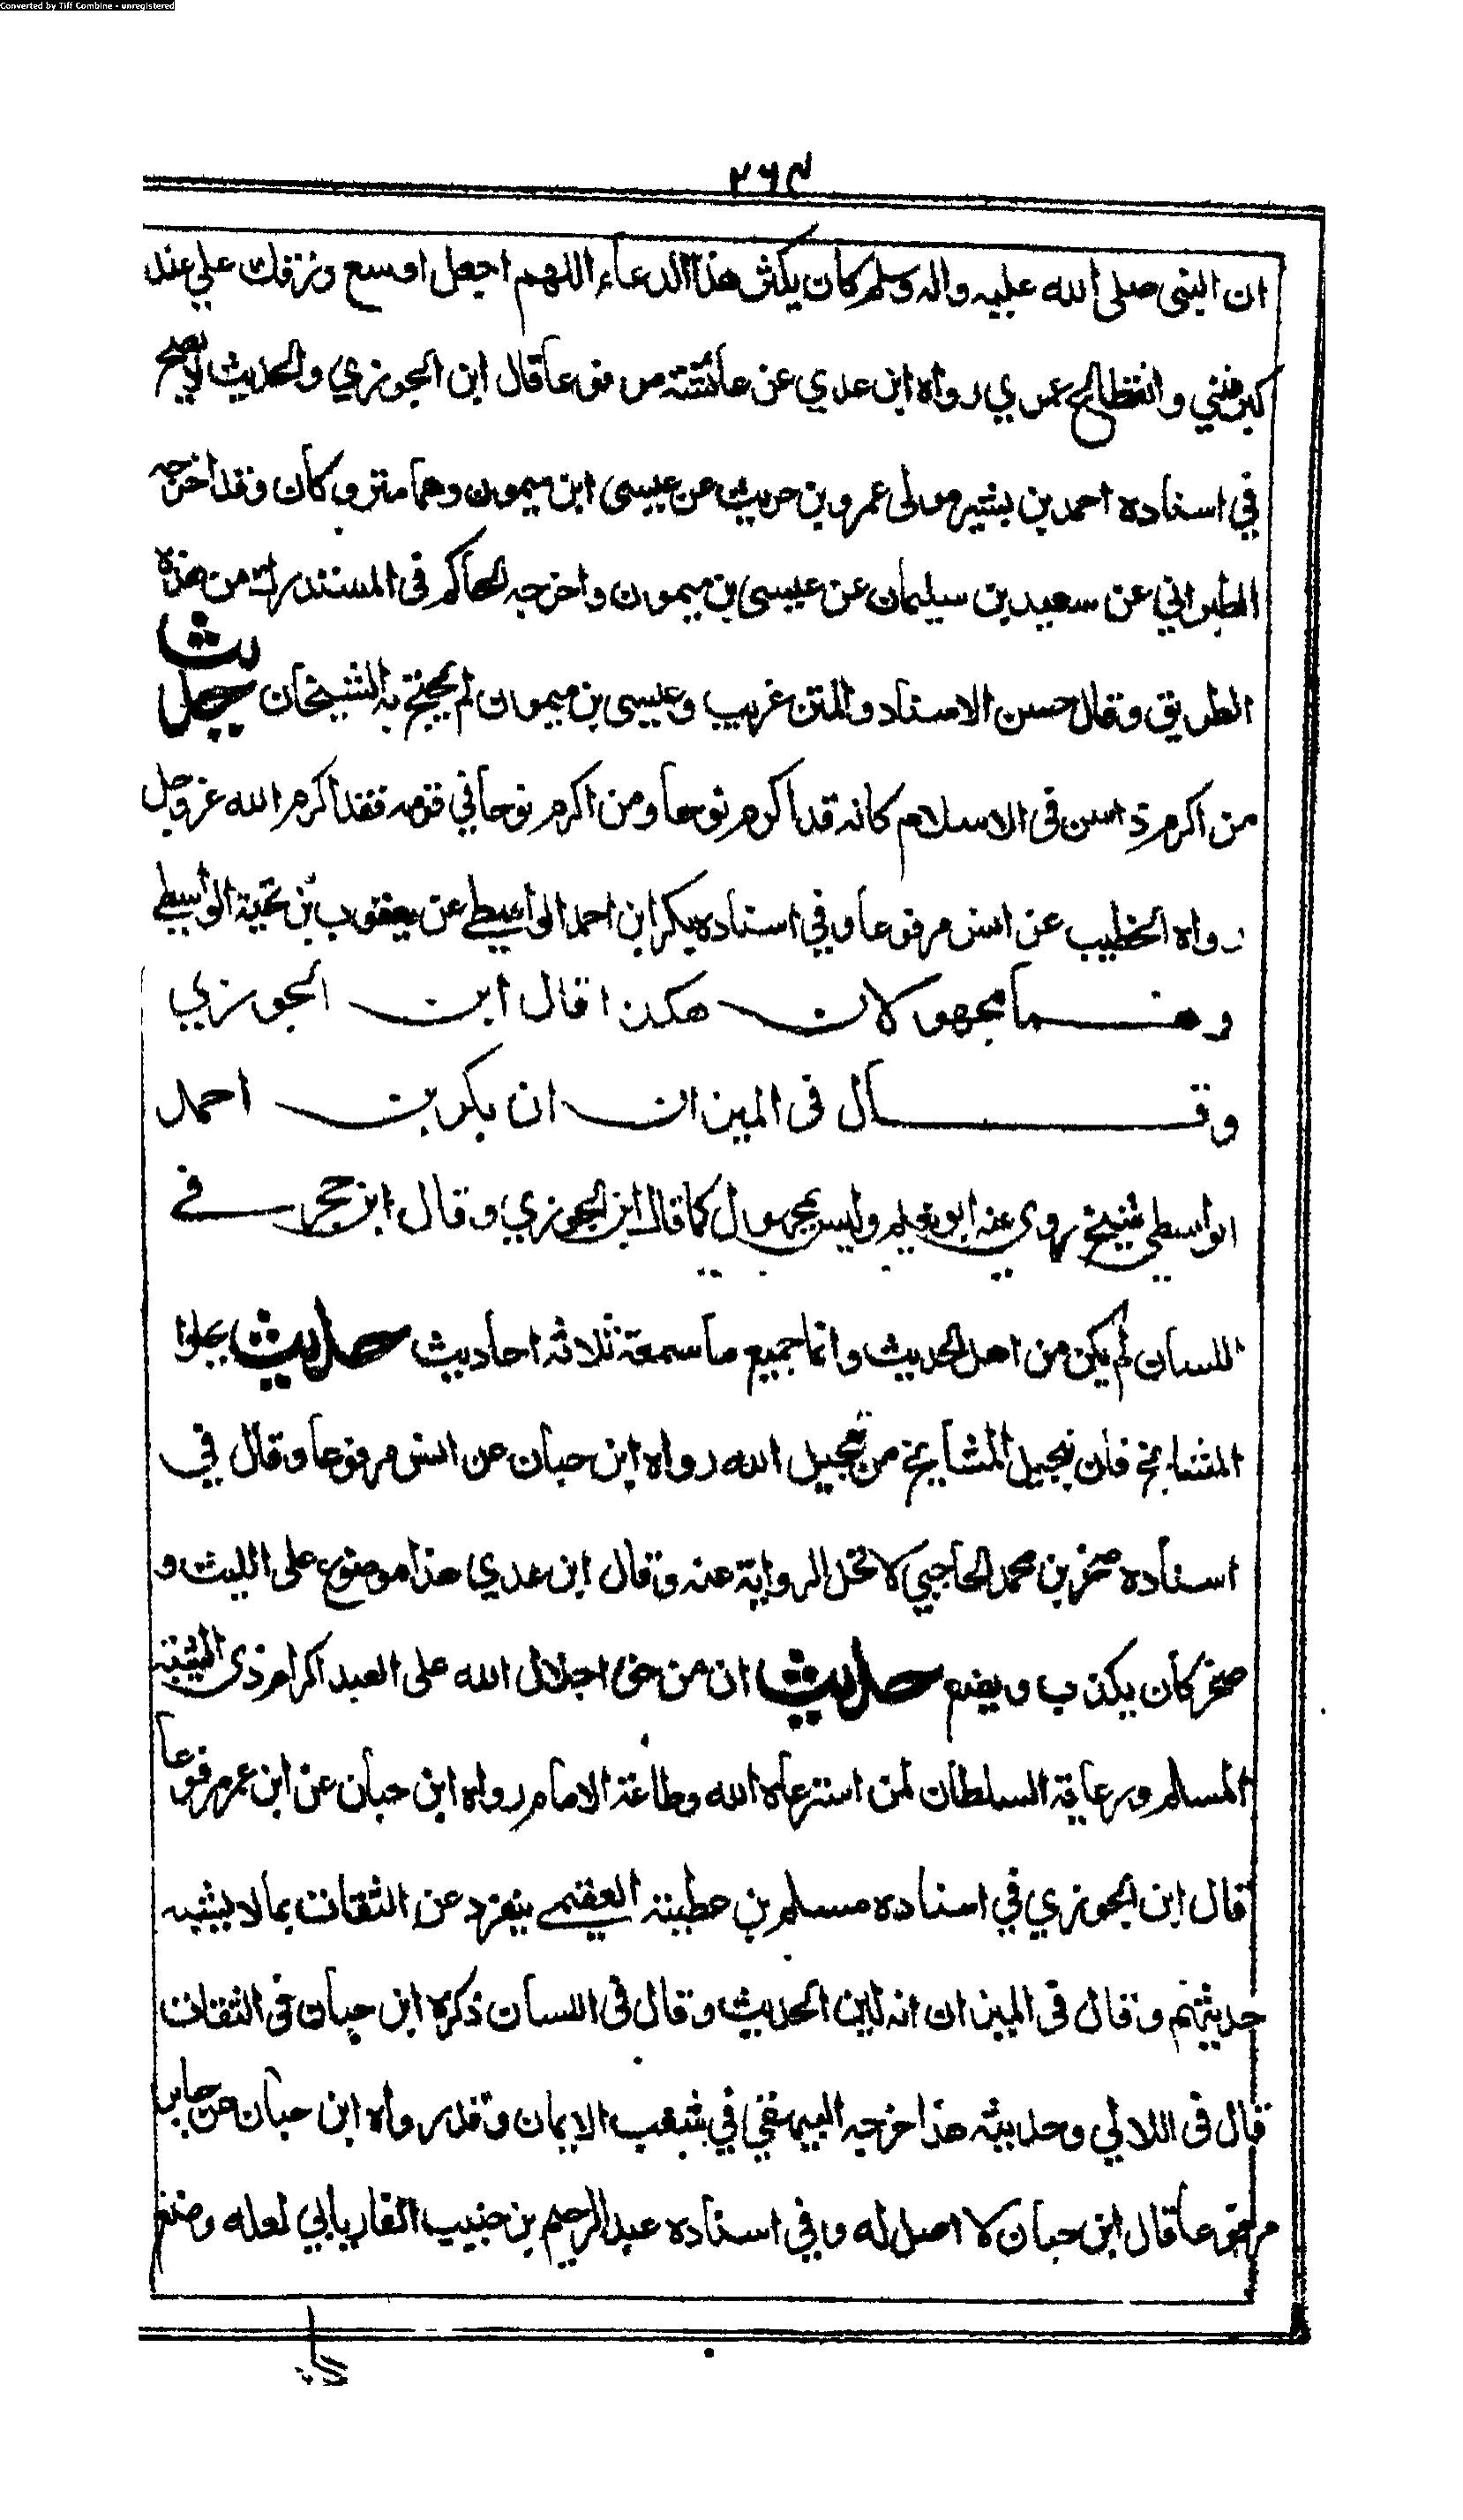 Converted by Tiff Combine - unregistered
٢٦٤
ان النبى صلى الله عليه واله وسلم كان يكثر هذا الدعاء اللهم اجعل اوسع رزقك علي عند
كبر سني وانقطاع عمري رواه ابن عدي عن عائشة مرفوعا قال ابن الجوزي والحديث لا يصح
في اسناده احمد بن بشير مولى عمرو بن حريث عن عيسى ابن ميمون وهما متروكان وقد اخرجه
الطبراني عن سعيد بن سليمان عن عيسى بن ميمون واخرجه الحاكم فى المستدرك من هذه
الطريق وقال حسن الاسناد والمتن غريب وعيسى بن ميمون لم يحتج به الشيخان حديث
من اكرم ذا سن فى الاسلام كانه قد اكرم نوحا ومن اكرم نوحا في قومه فقد اكرم الله عز وجل
رواه الخطيب عن انس مرفوعا وفي اسناده بكر ابن احمد الواسطي عن يعقوب بن تحية الواسطي
وهما مجهولان هكذا قال ابن الجوزي
وقال فى الميزان ان بكر بن احمد
الواسطي شيخ روى عنه ابو نعيم وليس بمجهول كما قال ابن الجوزي وقال ابن حجر في
اللسان لم يكن من اهل الحديث وانما جميع ما سمعه ثلاثه احاديث حديث بجلوا
المشايخ فان تبجيل المشايخ من تبجيل الله رواه ابن حبان عن انس مرفوعا وقال في
اسناده صخر بن محمد الحاجبي لا تحل الرواية عنه وقال ابن عدي هذا موضوع على الليث و
صخر كان يكذب ويضع حديث ان من حق اجلال الله على العبد اكرام ذى الشيبة
المسلم ورعاية السلطان لمن استرعاه الله وطاعة الامام رواه ابن حبان عن ابن عمر مرفوعا
قال ابن الجوزي في اسناده مسلم بن عطية الفقيمي ينفرد عن الثقات بما لا يشبه
حديثهم وقال فى الميزان انه لين الحديث وقال فى اللسان ذكره ابن حبان فى الثقات
قال فى اللالي وحديثه هذا خرجه البيهقي في شعب الايمان وقد رواه ابن حبان عن جابر
مرفوعا قال ابن حبان لا اصل له وفي اسناده عبد الرحيم بن حبيب الفاريابي لعله وضع